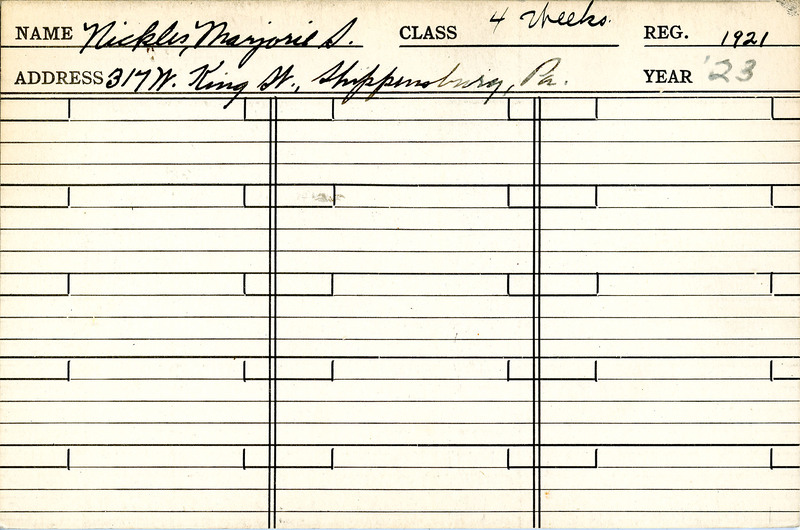 NAME Nickles, Marjorie S. CLASS 4 Weeks. REG. 1921
ADDRESS 317 W. King St., Shippensburg, Pa. YEAR '23